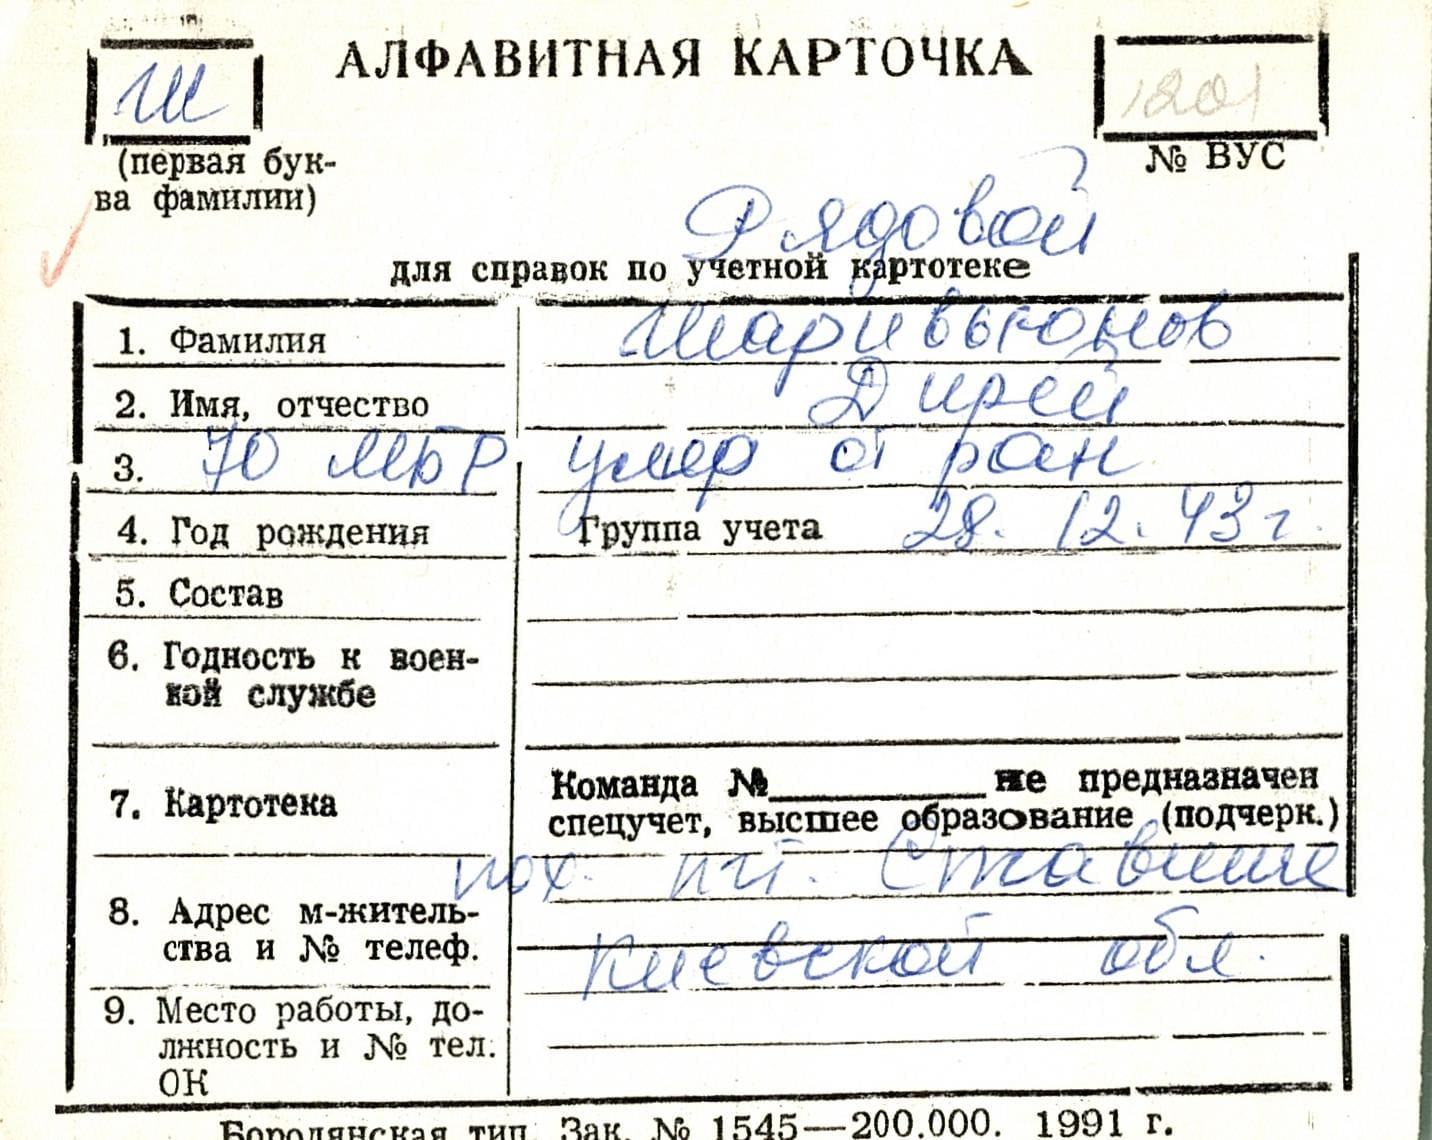 АЛФАВИТНАЯ КАРТОЧКА
Ш
1201
(первая бук-
ва фамилии)
№ ВУС
Рядовой
для справок по учетной картотеке
1. Фамилия Шаривьюнов
2. Имя, отчество Дирей
3. 70 МБР умер от ран
4. Год рождения Группа учета 28.12.43 г.
5. Состав
6. Годность к воен-
ной службе
7. Картотека
Команда № не предназначен
спецучет, высшее образование (подчерк.)
пох. пгт. Ставище
8. Адрес м-житель-
ства и № телеф.
Киевской обл.
9. Место работы, до-
лжность и № тел.
ОК
Бородянская тип. Зак. № 1545—200.000. 1991 г.